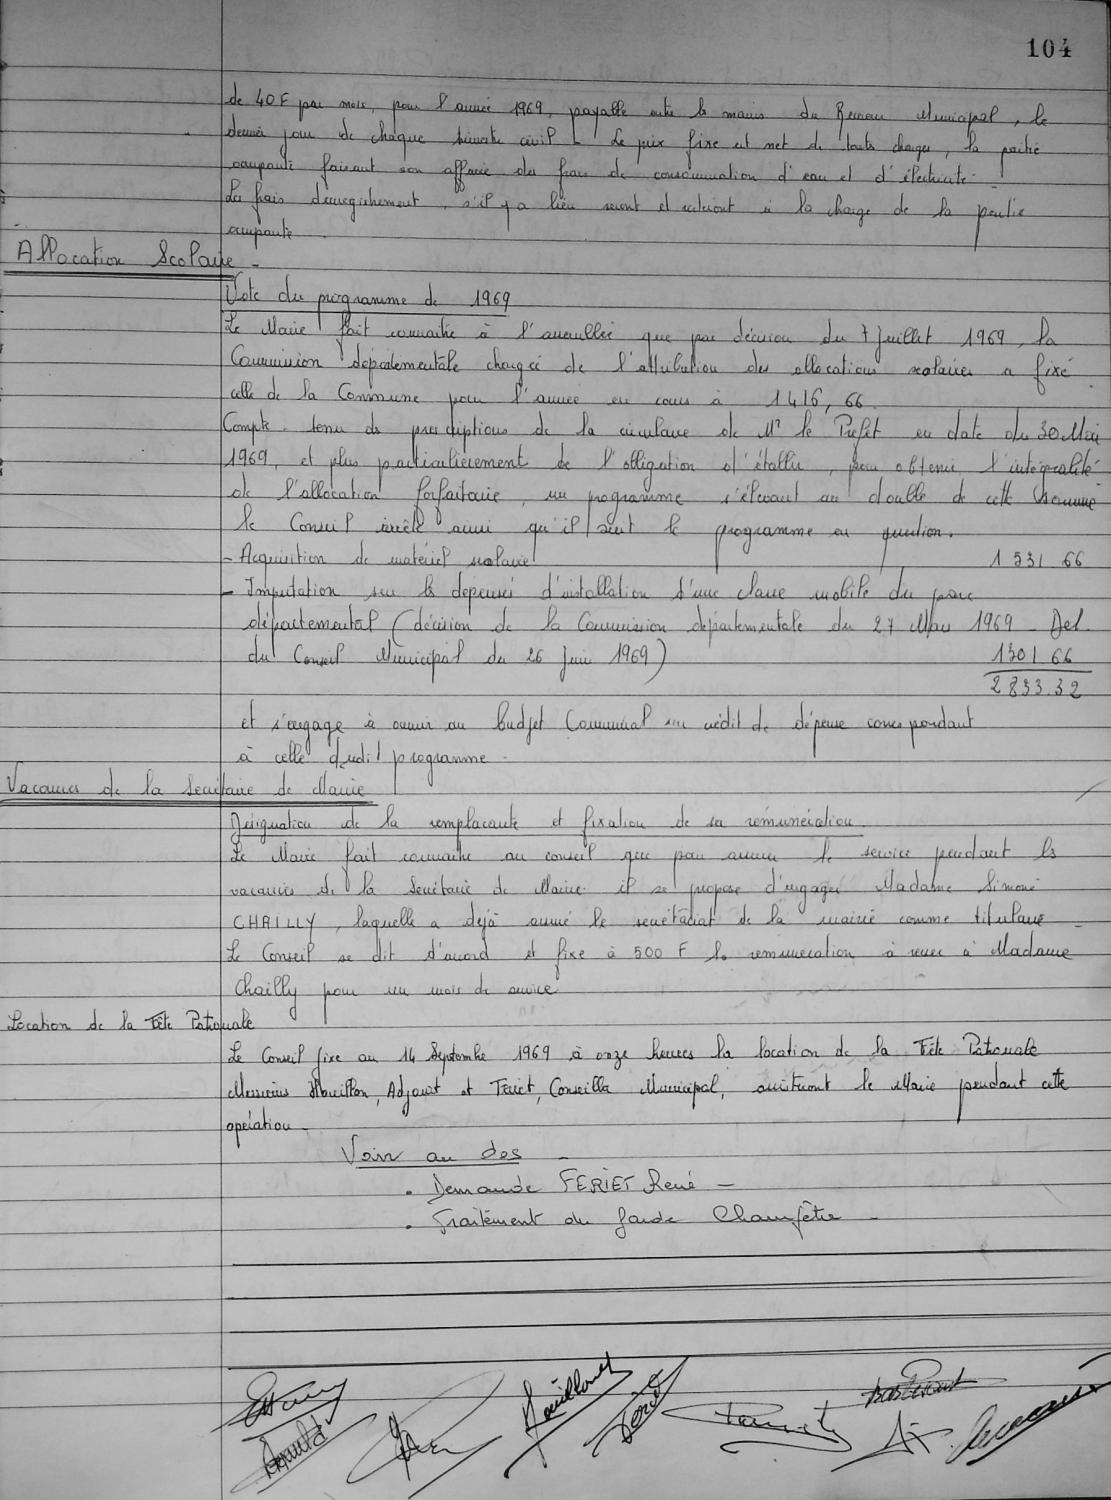 104
de 40 F par mois, pour l'année 1969, payable entre les mains du Receveur Municipal, le
dernier jour de chaque trimestre civil - Le prix fixe est net de toute charge, la partie
occupante faisant son affaire des frais de consommation d'eau et d'électricité -
Les frais d'enregistrement, s'il y a lieu seront et resteront à la charge de la partie
occupante.
Allocation Scolaire -
Vote du programme de 1969
Le Maire fait connaître à l'assemblée que par décision du 7 Juillet 1969, la
Commission départementale chargée de l'attribution des allocations scolaires a fixé
celle de la Commune pour l'année en cours à 1416,66.
Compte tenu des prescriptions de la circulaire de Mr le Préfet en date du 30 Mai
1969, et plus particulièrement de l'obligation d'établir, pour obtenir l'intégralité
de l'allocation forfaitaire, un programme s'élevant au double de cette somme
le Conseil arrête ainsi qu'il suit le programme en question.
- Acquisition de matériel scolaire 1531.66
- Imputation sur les dépenses d'installation d'une classe mobile du parc
départemental (décision de la Commission départementale du 27 Mars 1969 - Del.
du Conseil Municipal du 26 Juin 1969) 1301.66
2833.32
et s'engage à ouvrir au budget Communal un crédit de dépense correspondant
à celle dudit programme -
Vacances de la Secrétaire de Mairie
Désignation de la remplaçante et fixation de sa rémunération.
Le Maire fait connaître au conseil que pour assurer le service pendant les
vacances de la Secrétaire de Mairie il se propose d'engager Madame Simone
CHAILLY, laquelle a déjà assuré le secrétariat de la mairie comme titulaire -
Le Conseil se dit d'accord et fixe à 500 F la rémunération à verser à Madame
Chailly pour un mois de service
Location de la Fête Patronale
Le Conseil fixe au 14 Septembre 1969 à onze heures la location de la Fête Patronale
Messieurs Houillon, Adjoint et Feriet, Conseiller Municipal, assisteront le Maire pendant cette
opération -
Voir au dos -
. Demande FERIET René -
. Traitement du Garde Champêtre -